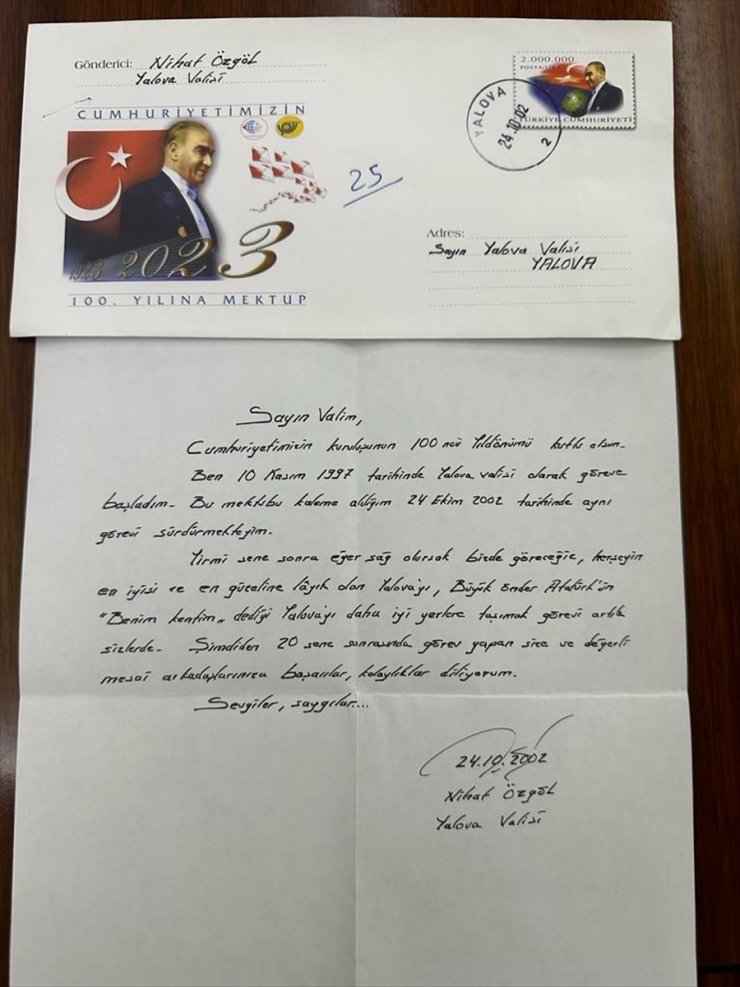 Gönderici: Nihat Özgöl
Yalova Valisi
CUMHURİYETİMİZİN
1923 2023
100. YILINA MEKTUP
25
2.000.000
POSTA
TÜRKİYE CUMHURİYETİ
YALOVA
24.10.02
2
Adres:
Sayın Yalova Valisi
YALOVA
Sayın Valim,
Cumhuriyetimizin kuruluşunun 100 ncü Yıldönümü kutlu olsun.
Ben 10 Kasım 1997 tarihinde Yalova valisi olarak göreve
başladım. Bu mektubu kaleme aldığım 24 Ekim 2002 tarihinde aynı
görevi sürdürmekteyim.
Yirmi sene sonra eğer sağ olursak bizde göreceğiz, herşeyin
en iyisi ve en güzeline lâyık olan Yalova'yı, Büyük önder Atatürk'ün
"Benim kentim" dediği Yalova'yı daha iyi yerlere taşımak görevi artık
sizlerde. Şimdiden 20 sene sonrasında görev yapan size ve değerli
mesai arkadaşlarınıza başarılar, kolaylıklar diliyorum.
Sevgiler, saygılar...
24.10.2002
Nihat Özgöl
Yalova Valisi